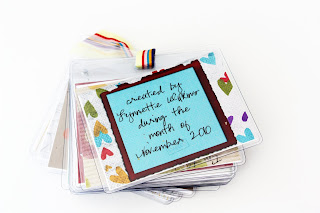 created by
Lynnette
during the
month of
November 2010